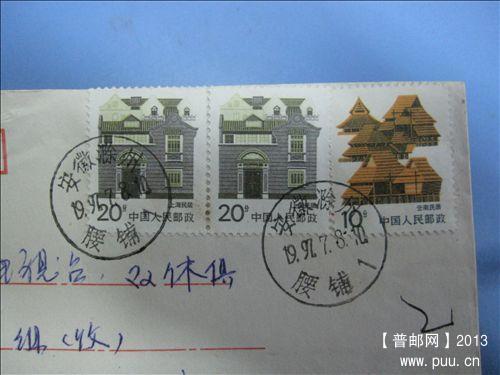 上海民居
20分
中国人民邮政
20分
中国人民邮政
云南民居
10分
中国人民邮政
安徽滁州
19.97.7.8.10
腰铺
安徽滁州
19.97.7.8.10
腰铺 1
双休俱
组(收)
【普邮网】2013
www.puu.cn